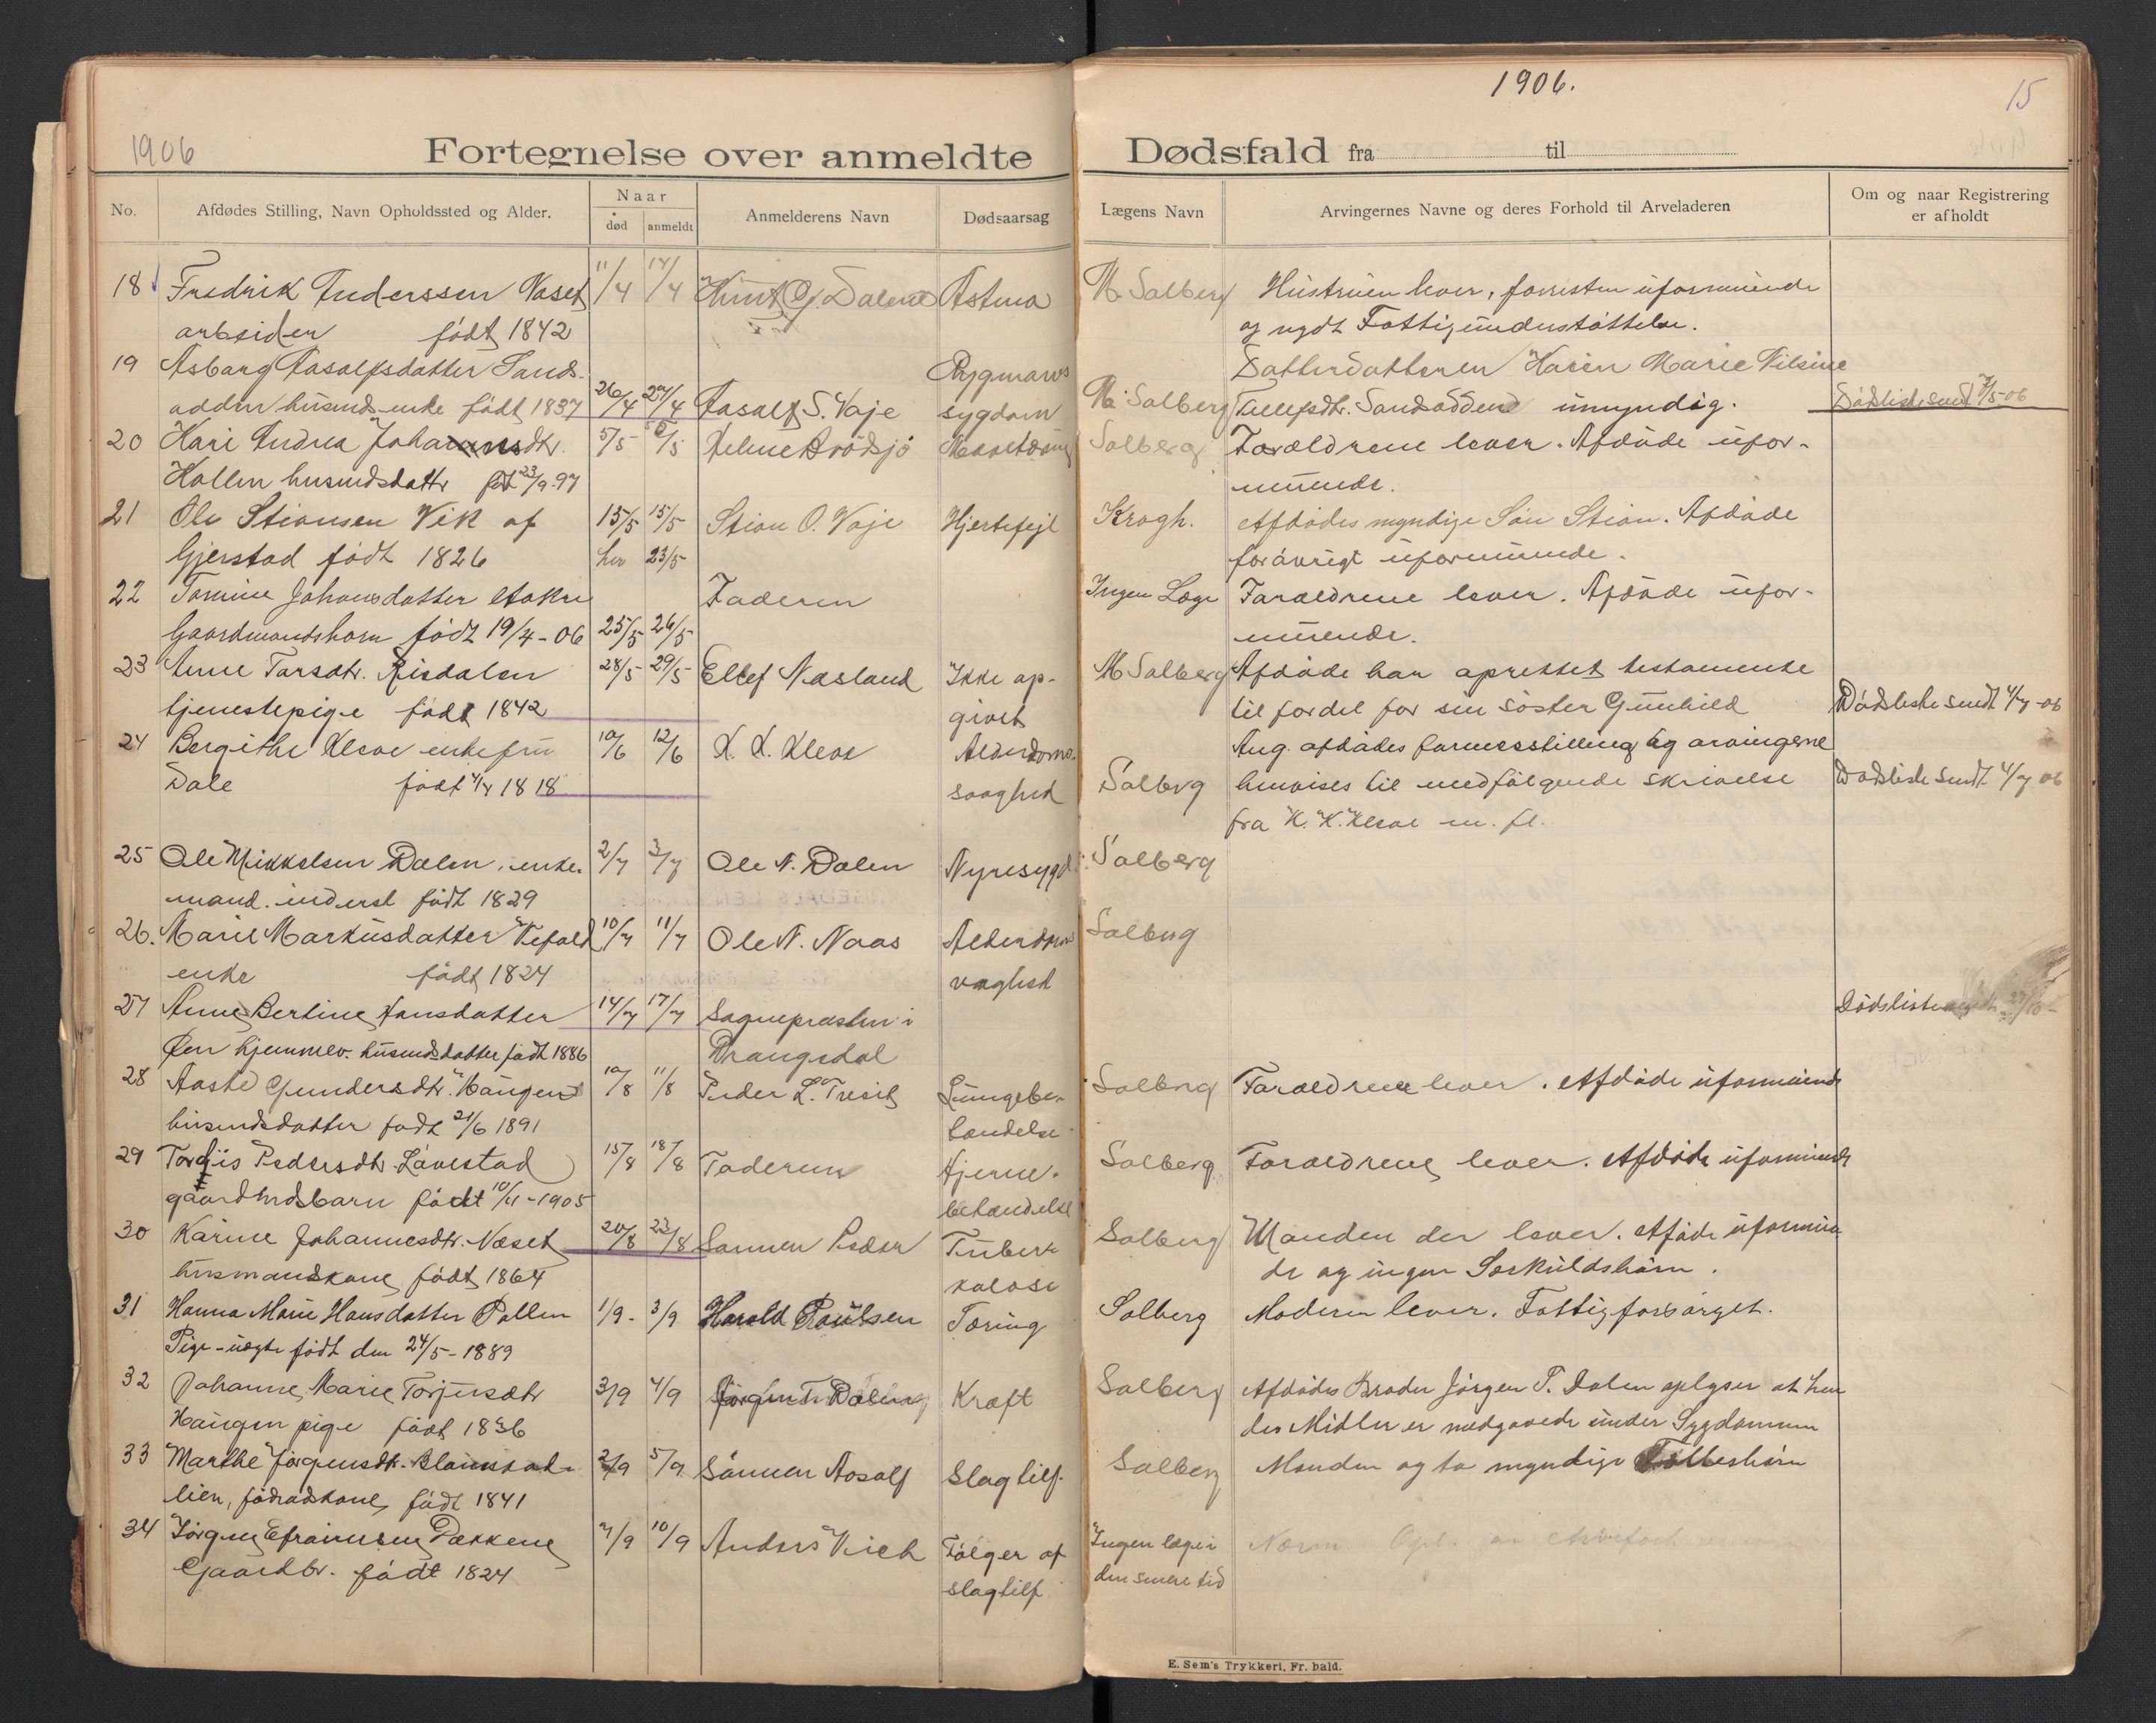 1906.
15
1906
Fortegnelse over anmeldte Dødsfald fra til
No.
Afdødes Stilling, Navn Opholdssted og Alder.
Naar
død
anmeldt
Anmelderens Navn
Dødsaarsag
Lægens Navn
Arvingernes Navne og deres Forhold til Arveladeren
Om og naar Registrering
er afholdt
18 Fredrik Anderssen Næset 11/4 14/4 Knut G. Dalene Astma M Solberg Hustruen lever, forresten uformuende
arbeider født 1842 og nydt Fattigunderstøttelse.
19 Asborg Aasolfsdatter Sands- Rygmarvs Datterdatteren Karen Marie Nilsine
odden husmds enke født 1837 26/4 27/4 Aasolf S. Voje sygdom M. Solberg Tellefsdtr. Sandsodden umyndig. Dødsliste sendt 7/5-06
20 Kari Andrea Johannesdtr. 5/5 5/5 Solberg Forældrene lever. Afdøde ufor-
Hallen husmdsdattr født 23/9-97 muende.
21 Ole Stiansen Vik af 13/5 15/5 Stian O. Voje Hjertefejl Krogh. Afdødes myndige Søn Stian. Afdøde
Gjerstad født 1826 her 23/5 forøvrigt uformuende.
22 Tomine Johansdatter Faderen Ingen Læge Forældrene lever. Afdøde ufor-
Gaardmandsbarn født 19/4-06 25/5 26/5 muende.
23 Anne Tarsdtr. Risdalen 28/5 29/5 Ellef Næsland Ikke op- M Solberg Afdøde har oprettet testamente
tjenestepige født 1842 givet til fordel for sin søster Gunhild Dødsliste sendt 4/7-06
24 Bergithe Kleve enkefru 10/6 12/6 K. K. Kleve Alderdoms- Ang. afdødes formuesstilling og arvingerne
Dale født 4/4 1818 svaghed Solberg henvises til medfølgende skrivelse Dødsliste sendt 4/7 06
fra K. K. Kleve m. fl.
25 Ole Mikkelsen Dalen, enke- 2/7 3/7 Ole N. Dalen Nyresygd. Solberg
mand. inderst født 1829
26. Marie Markusdatter Vefald 10/7 11/7 Ole N. Naas Alderdoms Solberg
enke født 1824 vaghed
27 Anne Bertine Hansdatter 14/7 17/7 Sognepresten i Dødsliste sendt 27/10
Øen hjemmev. husmdsdatter født 1886 Drangedal
28 Aaste Gundersdtr. Haugen 10/8 11/8 Peder L. Lungebe- Solberg Forældrene lever. Afdøde uformuende
husmdsdatter født 21/6 1891 tændelse
29 Tordis Pedersdtr. Løvestad 15/8 18/8 Faderen Hjerne- Solberg Forældrene lever. Afdøde uformuende
gaardmdsbarn født 10/11-1905 betændelse
30 Karine Johannesdtr. Næset 20/8 22/8 Sønnen Peder Tuber- Solberg Manden der lever. Afdøde uformuen-
husmandskone født 1864 kolose de og ingen Særkuldsbørn.
31 Hanna Marie Hansdatter Pollen 1/9. 3/9 Harald Paulsen Tæring Solberg Moderen lever. Fattigforsørget.
Pige-uægte født den 24/5-1889
32 Johanne Marie Torjusdtr 3/9 4/9 Jørgen T. Dalen Kræft Solberg Afdødes Broder Jørgen T. Dalen oplyser at hen
Haugen pige født 1836 des Midler er medgaaede under Sygdommen
33 Marthe Jørgensdtr. 2/9 5/9 Sønnen Aasolf Slagtilf. Solberg Manden og to myndige Fællesbørn
lien, føderådskone, født 1841
34 Jørgen Efraimsen Dekkene 7/9 10/9 Anders Følger af Ingen læge i
Gaardbr. født 1824 slagtilf den senere tid
E. Sem's Trykkeri, Fr. hald.